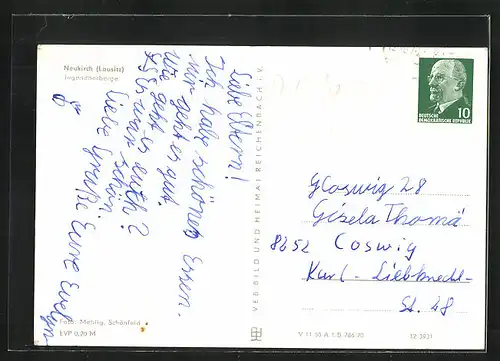 Neukirch (Lausitz)
Jugendherberge
Liebe Eltern!
Ich habe schönes Essen.
Mir geht es gut.
Wie geht es euch?
Es war schön.
Liebe Grüße Eure Evelyn
Foto: Mehlig, Schönfeld
EVP 0,20 M
VEB BILD UND HEIMAT REICHENBACH I. V.
V 11 50 A 1/B 706/70
12/3931
10
DEUTSCHE
DEMOKRATISCHE REPUBLIK
Coswig 28
Gisela Thomä
8252 Coswig
Karl-Liebknecht-
St. 48